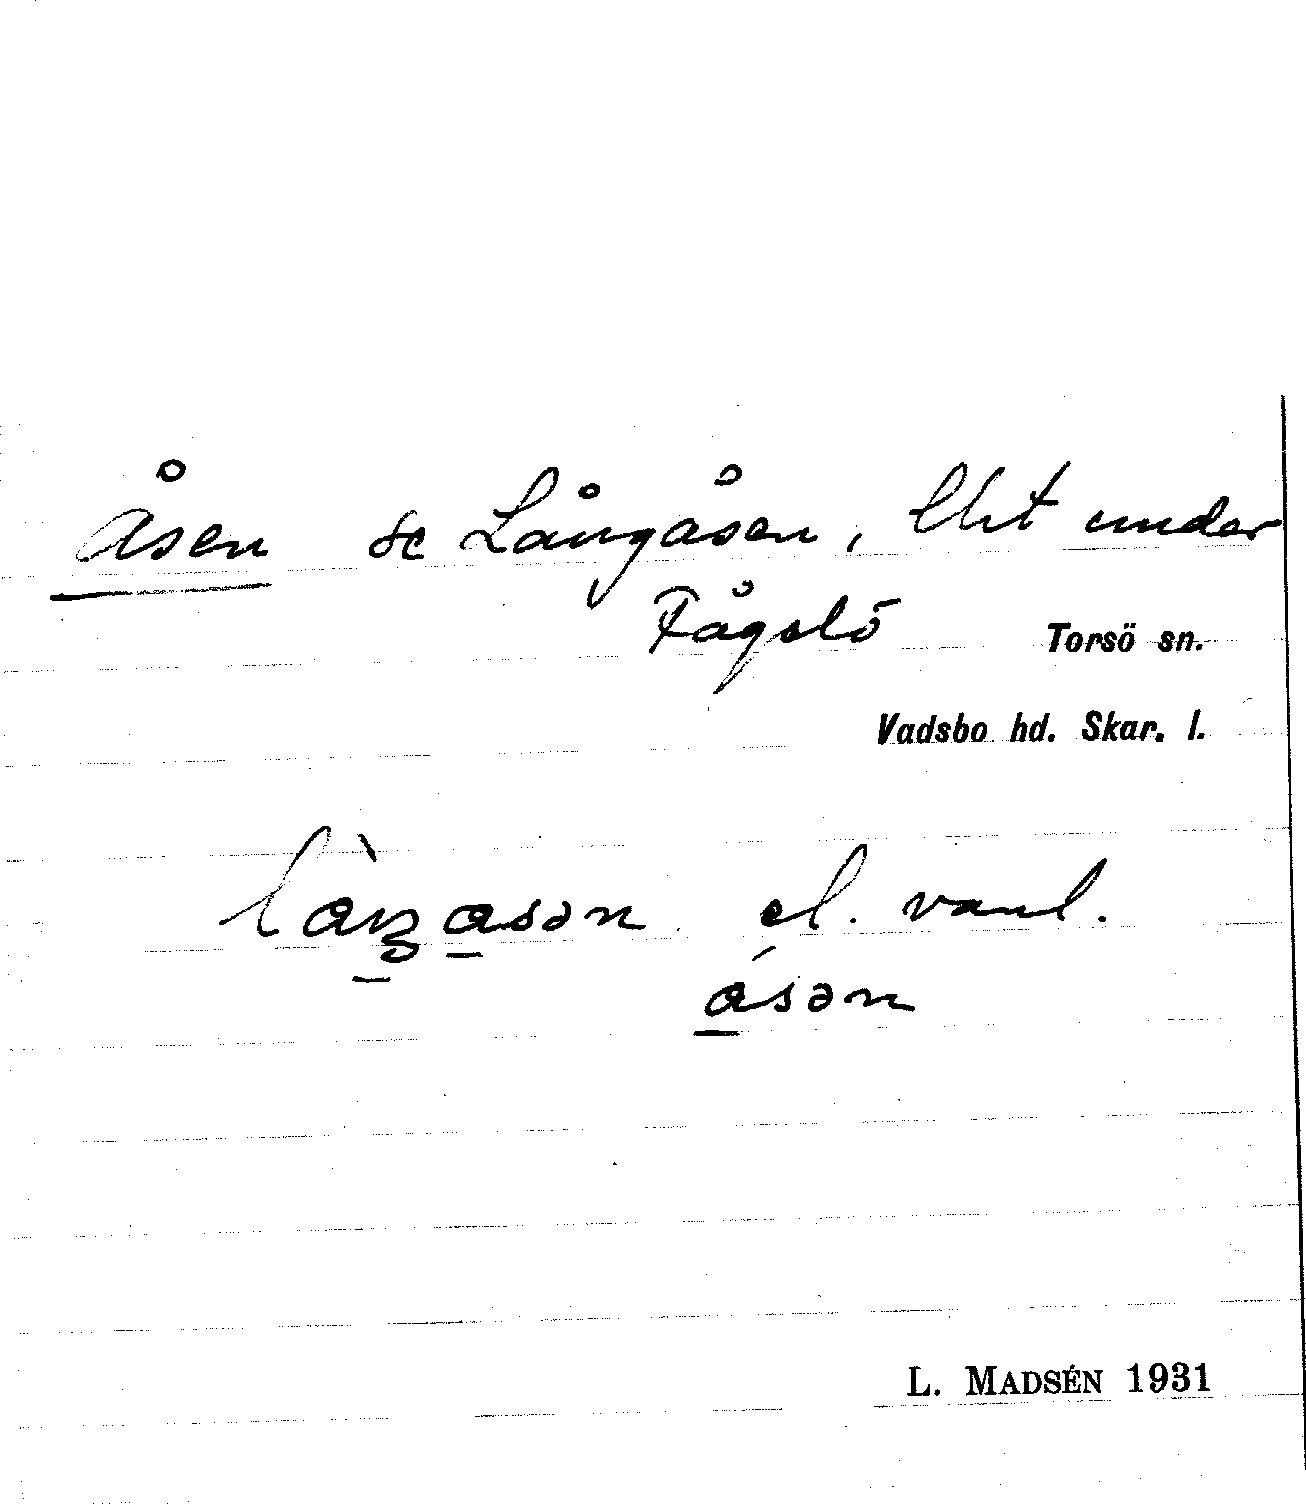 Åsen se Långåsen, lht under
Fågelö Torsö sn.
Vadsbo hd. Skar. l.
el. vanl.
åsən
L. MADSÉN 1931